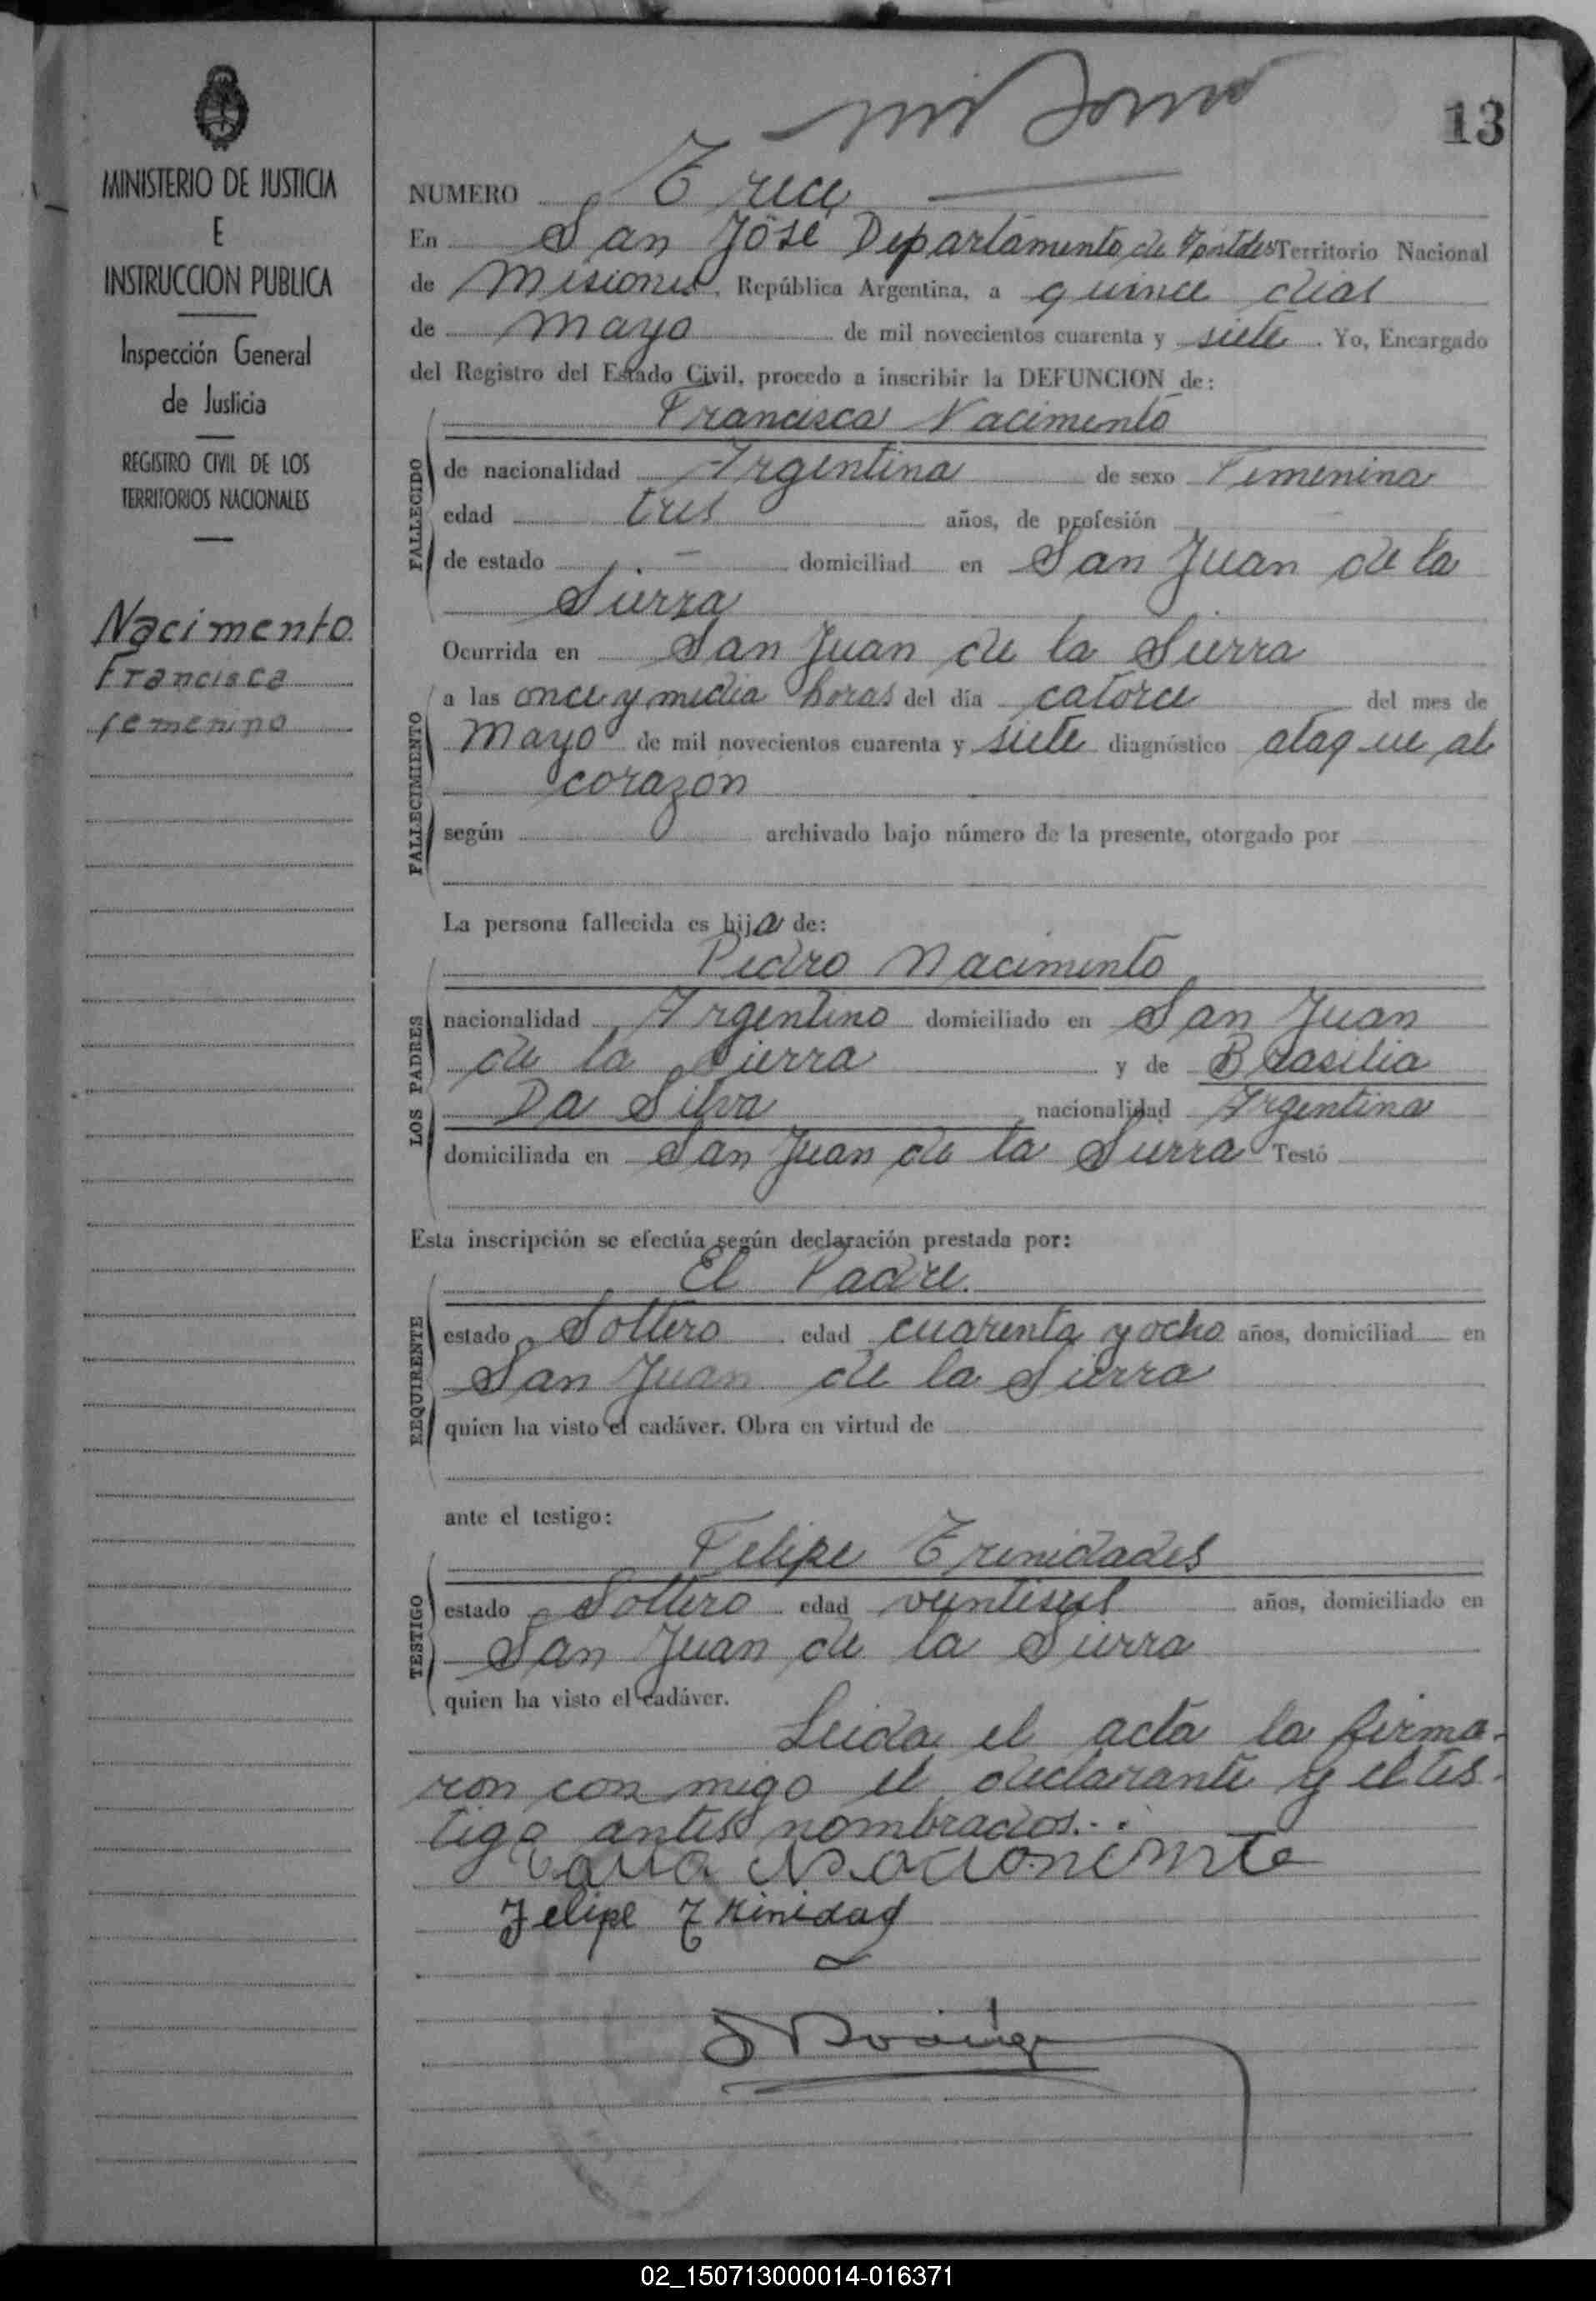 13
MINISTERIO DE JUSTICIA
E
INSTRUCCION PUBLICA
Inspección General
de Justicia
REGISTRO CIVIL DE LOS
TERRITORIOS NACIONALES
Nacimento
Francisca
femenino
NUMERO Trece
En San José Departamento de Territorio Nacional
de Misiones, República Argentina, a quince dias
de Mayo de mil novecientos cuarenta y siete. Yo, Encargado
del Registro del Estado Civil, procedo a inscribir la DEFUNCION de:
Francisca Nacimento
FALLECIDO
de nacionalidad Argentina de sexo Femenina
edad tres años, de profesión
de estado - domiciliad en San Juan de la
Sierra
Ocurrida en San Juan de la Sierra
FALLECIMIENTO
a las once y media horas del día catorce del mes de
Mayo de mil novecientos cuarenta y siete diagnóstico ataque al
corazón
según archivado bajo número de la presente, otorgado por
La persona fallecida es hija de:
LOS PADRES
Pedro Nacimento
nacionalidad Argentino domiciliado en San Juan
de la Sierra y de Brasilia
Da Silva nacionalidad Argentina
domiciliada en San Juan de la Sierra Testó
Esta inscripción se efectúa según declaración prestada por:
REQUIRENTE
El Padre.
estado Soltero edad cuarenta y ocho años, domiciliad en
San Juan de la Sierra
quien ha visto el cadáver. Obra en virtud de
ante el testigo:
TESTIGO
Felipe Trinidades
estado Soltero edad veintiseis años, domiciliado en
San Juan de la Sierra
quien ha visto el cadáver.
Leida el acta la firma-
ron con migo el declarante y el tes-
tigo antes nombrados.
Felipe Trinidad
02_150713000014-016371